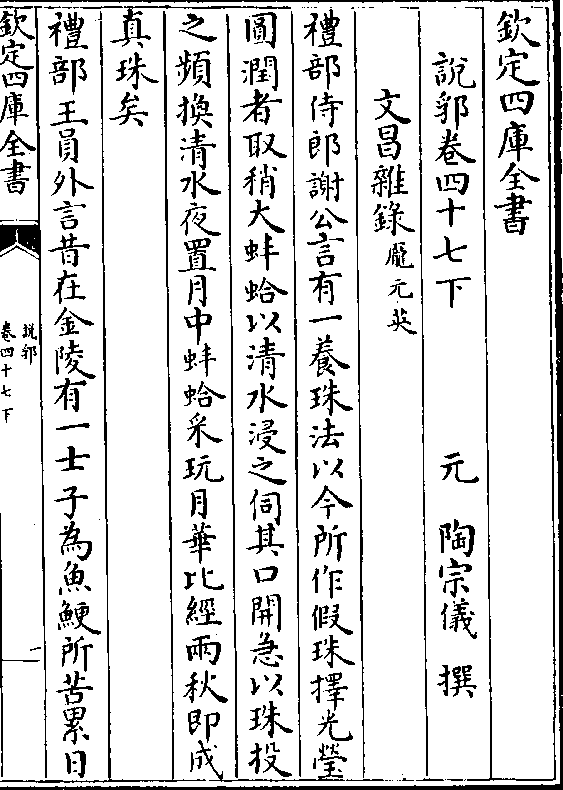 欽定四庫全書
說郛卷四十七下
元 陶宗儀 撰
文昌雜錄龎元英
禮部侍郎謝公言有一養珠法以今所作假珠擇光瑩
圓潤者取稍大蚌蛤以清水浸之伺其口開急以珠投
之頻換清水夜置月中蚌蛤采玩月華比經兩秋即成
真珠矣
禮部王員外言昔在金陵有一士子為魚鯁所苦累日
欽定四庫全書
說郛
卷四十七下
一